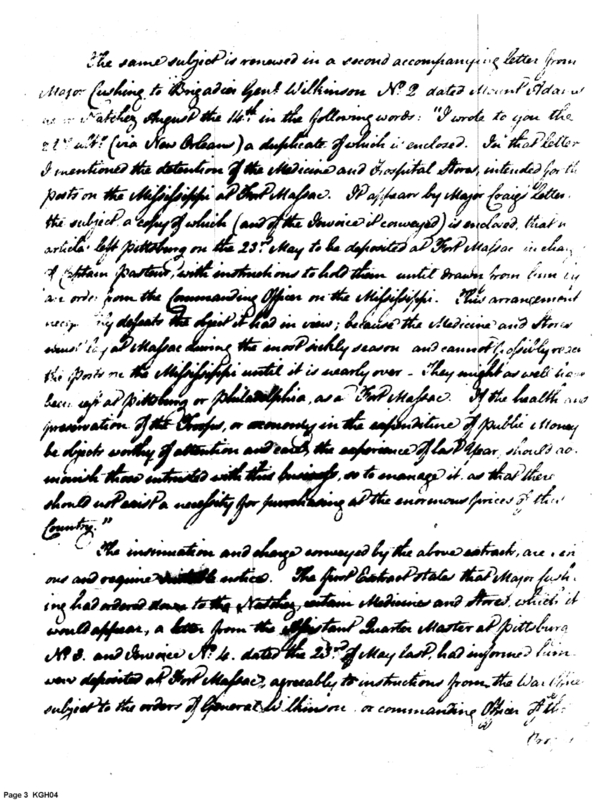 The same subject is renewed in a second accompanying letter from
Major Cushing to Brigadier Genl. Wilkinson No. 2 dated Mount Adams
Natchez August the 14th. in the following words: "I wrote to you the
ulto. (via New Orleans) a duplicate of which is enclosed. In that letter
I mentioned the detention of the Medicine and Hospital Stores, intended for the
posts on the Mississippi at Fort Massac. It appears by Major Craigs letter
the subject a copy of which (and of the Invoice it conveyed) is enclosed, that
articles left Pittsburg on the 23rd. May to be deposited at Fort Massac in
of Captain Pasteur, with instructions to hold them until drawn from him by
an order from the Commanding Officer on the Mississippi. This arrangement
defeats the object it had in view; because the Medicine and Stores
must lay at Massac during the most sickly season and cannot possibly reach
the posts on the Mississippi until it is nearly over - They might as well have
been kept at Pittsburg or Philadelphia, as a Fort Massac. If the health and
preservation of the Troops, or economy in the expenditure of public Money
be objects worthy of attention and care, the experience of last Year, should ad-
monish those intrusted with this business, so to manage it as that there
should not exist a necessity for purchasing at the enormous prices of this
Country."
The insinuation and charge conveyed by the above extracts, are
ous and require notice. The first Extract states that Major Cush-
ing had ordered down to the Natchez, certain Medicines and Stores, which it
would appear, a letter from the Assistant Quarter Master at Pittsburg
No. 3. and Invoice No. 4. dated the 23rd. of May last, had informed him
were deposited at Fort Massac, agreably to instructions from the War Office
subject to the orders of General Wilkinson or commanding Officer of the
Page 3 KGH04